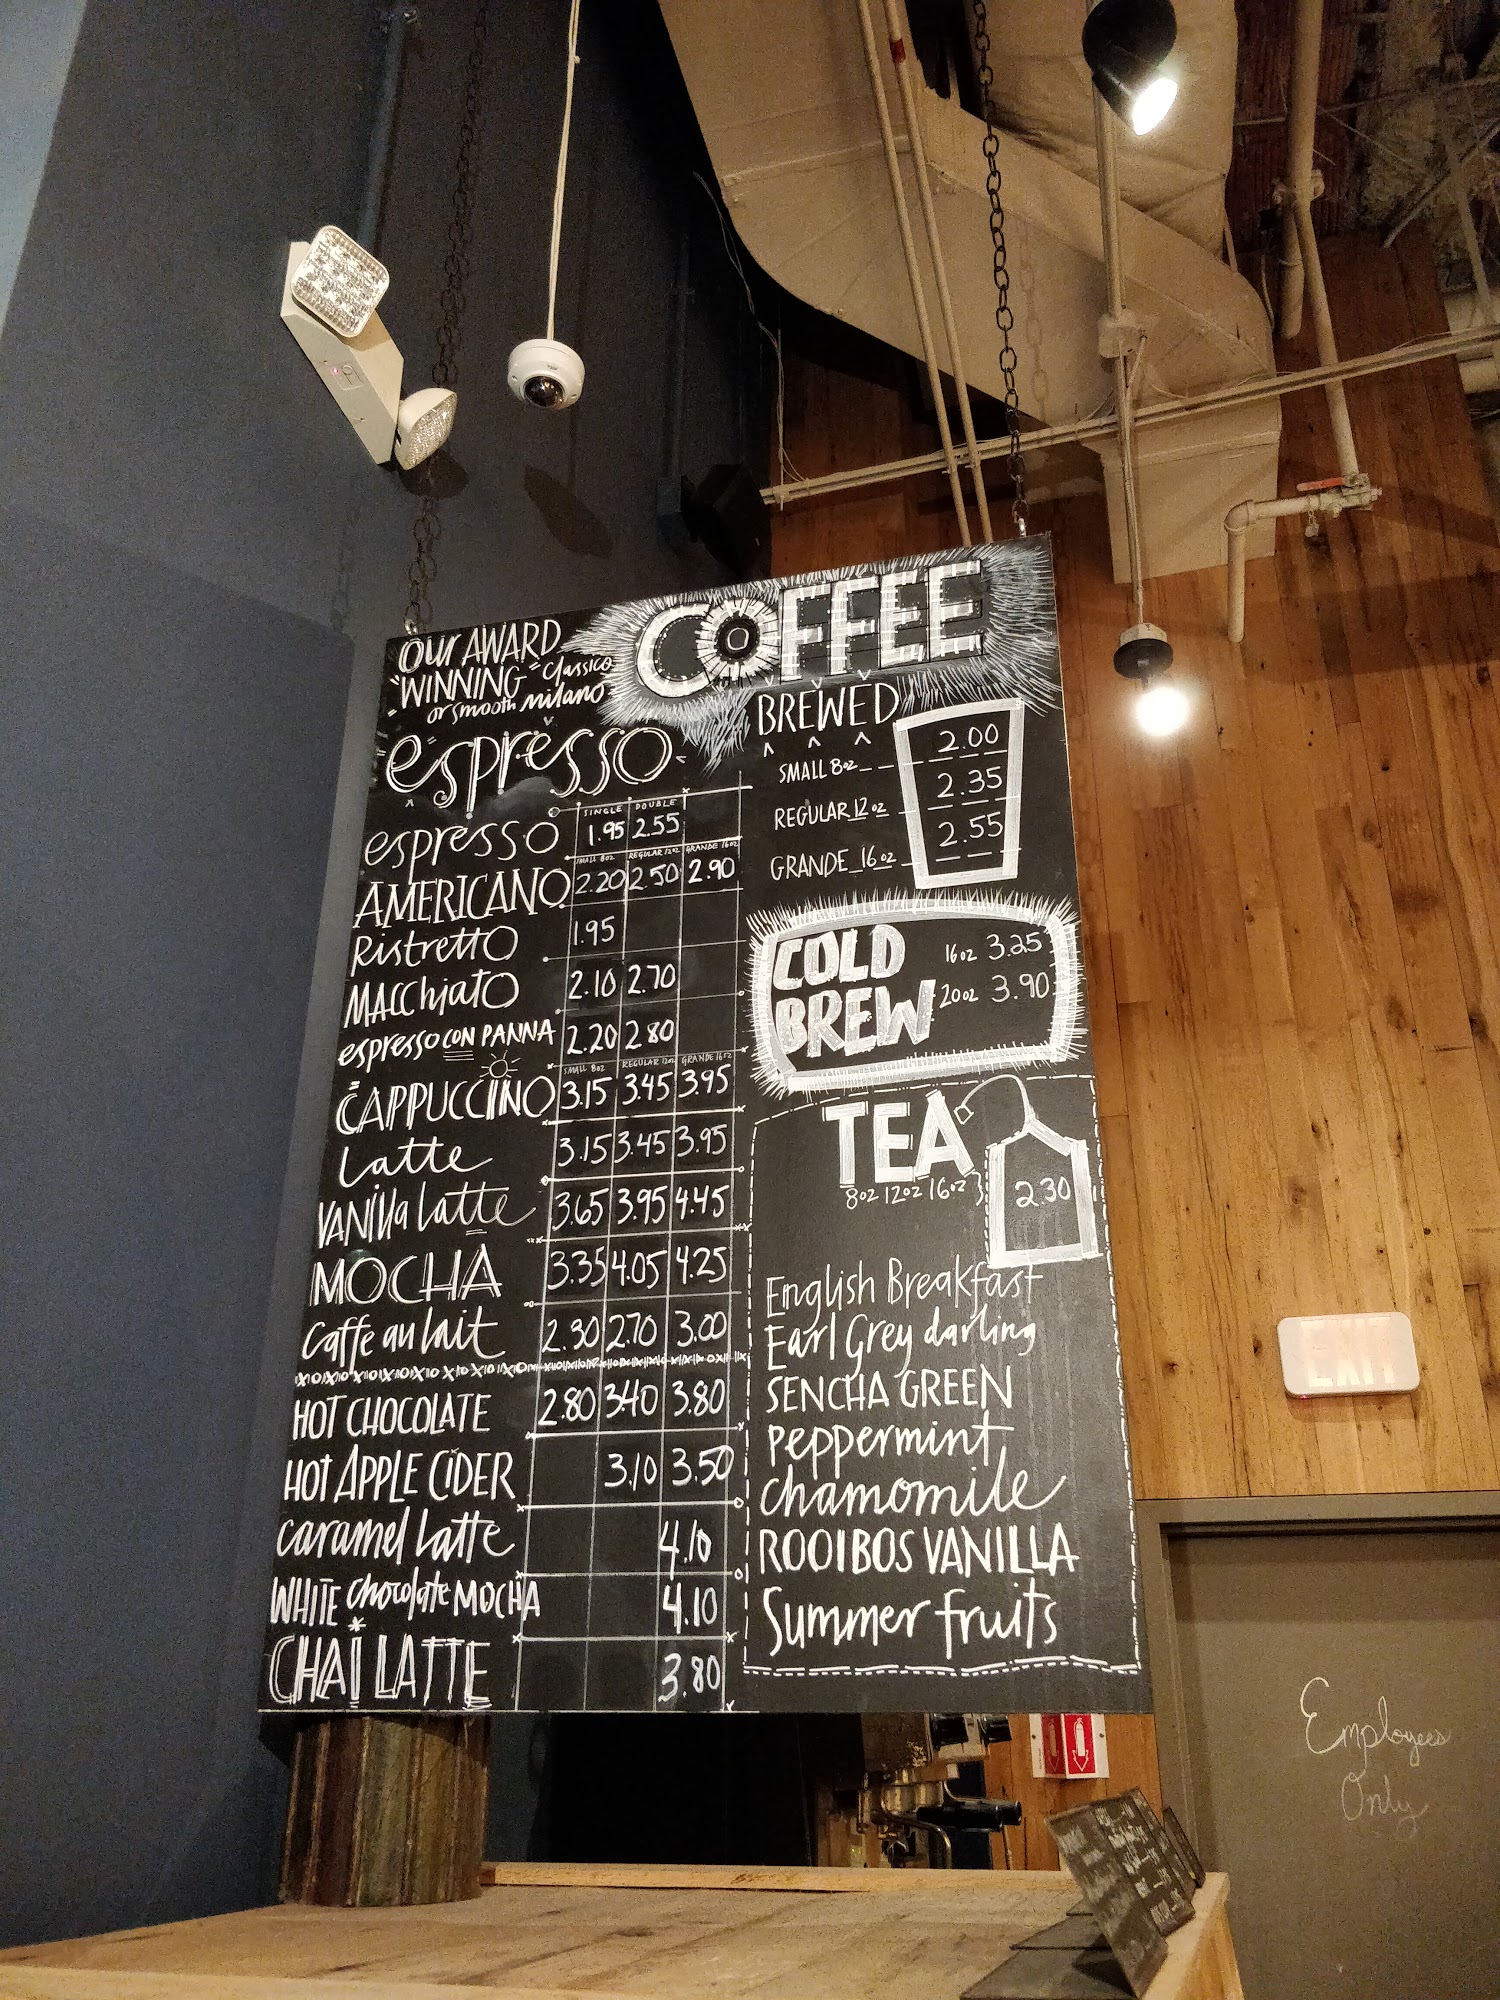 our AWARD
"WINNING" classico
or smooth milano
COFFEE
espresso
SINGLE DOUBLE
espresso 1.95 2.55
SMALL 8oz REGULAR 12oz GRANDE 16oz
AMERICANO 2.20 2.50 2.90
Ristretto 1.95
MACChiatO 2.10 2.70
espresso con PANNA 2.20 2.80
SMALL 8oz REGULAR 12oz GRANDE 16oz
CAPPUCCINO 3.15 3.45 3.95
Latte 3.15 3.45 3.95
VANilla Latte 3.65 3.95 4.45
MOCHA 3.35 4.05 4.25
Caffe au lait 2.30 2.70 3.00
HOT CHOCOLATE 2.80 3.40 3.80
HOT APPLE CiDER 3.10 3.50
Caramel Latte 4.10
WHITE chocolate MOCHA 4.10
CHAi LATTE 3.80
BREWED
SMALL 8oz 2.00
REGULAR 12oz 2.35
GRANDE 16oz 2.55
COLD BREW
16oz 3.25
20oz 3.90
TEA
8oz 12oz 16oz } 2.30
English Breakfast
Earl Grey darling
SENCHA GREEN
Peppermint
chamomile
ROOIBOS VANILLA
Summer fruits
EXIT
Employees
Only